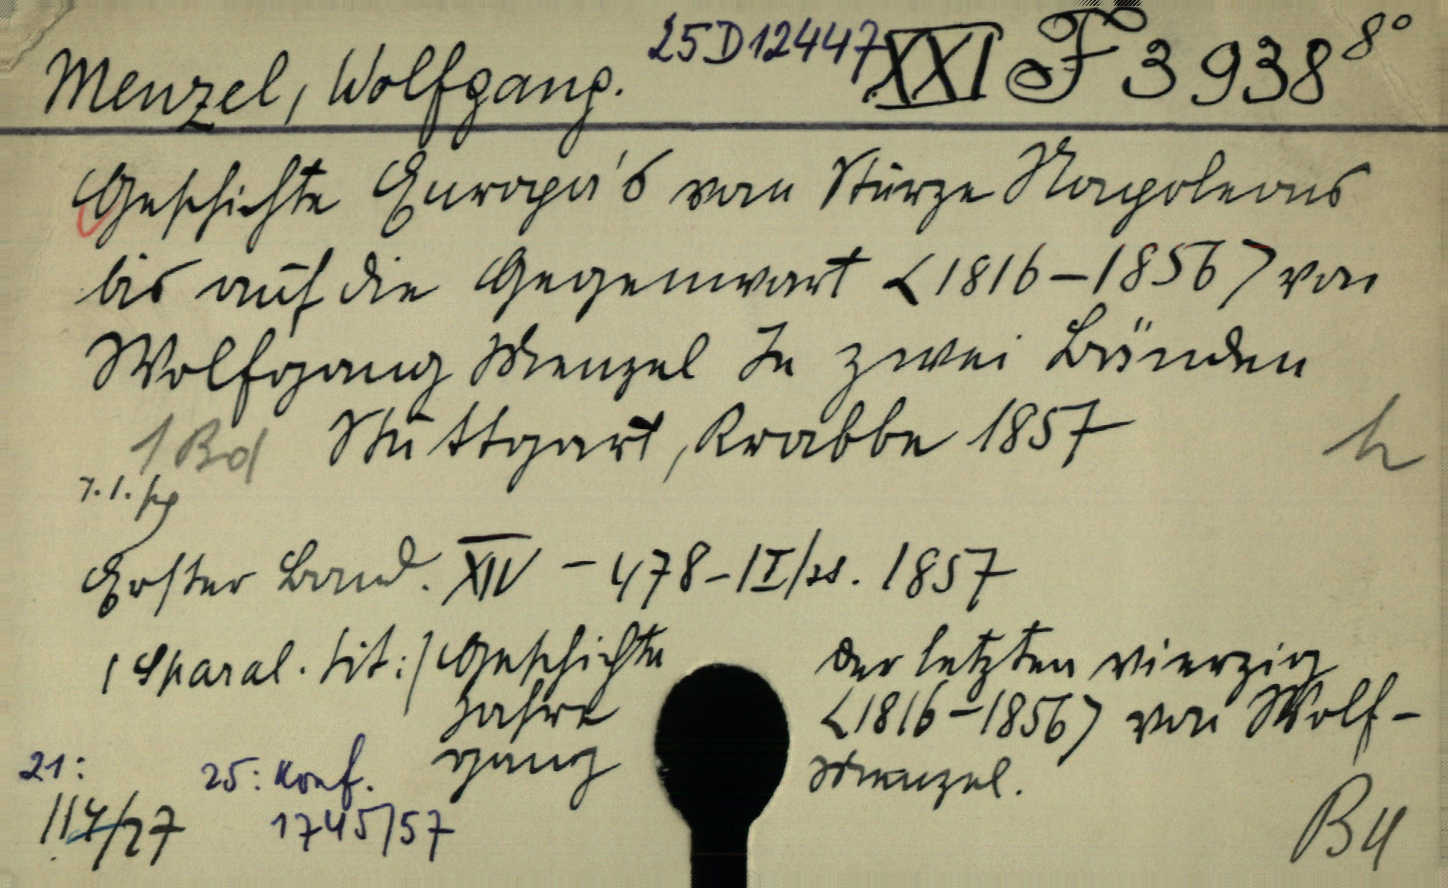 Menzel, Wolfgang. 25D12447 XXI F 3938 8°
Geschichte Europa's vom Sturze Napoleons
bis auf die Gegenwart <1816-1856> von
Wolfgang Menzel In zwei Bänden
1 Bd Stuttgart, Krabbe 1857 h
Erster Band. XIV - 478 - 1 I/ss. 1857
( Sparal. tit:) Geschichte der letzten vierzig
Jahre <1816-1856> von Wolf-
gang Menzel.
21: 25: Konf.
117/27 1745/57